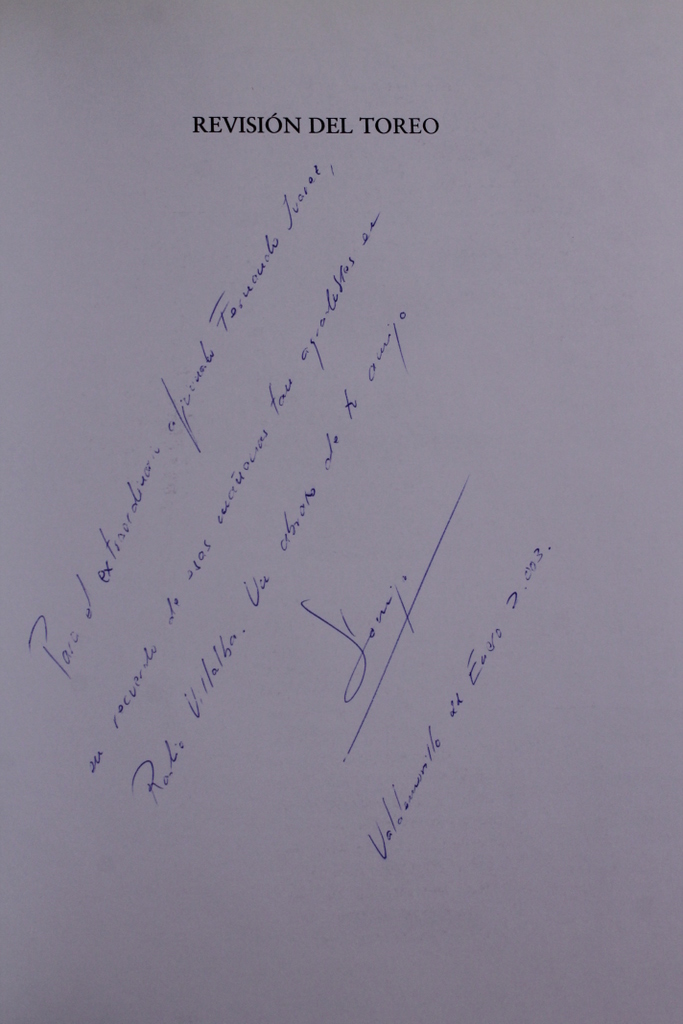 REVISIÓN DEL TOREO
Para el extraordinario aficionado Fernando Juarez,
en recuerdo de esas mañanas tan agradables en
Radio Villalba. Un abrazo de tu amigo
Valdemorillo en Enero 2.003.